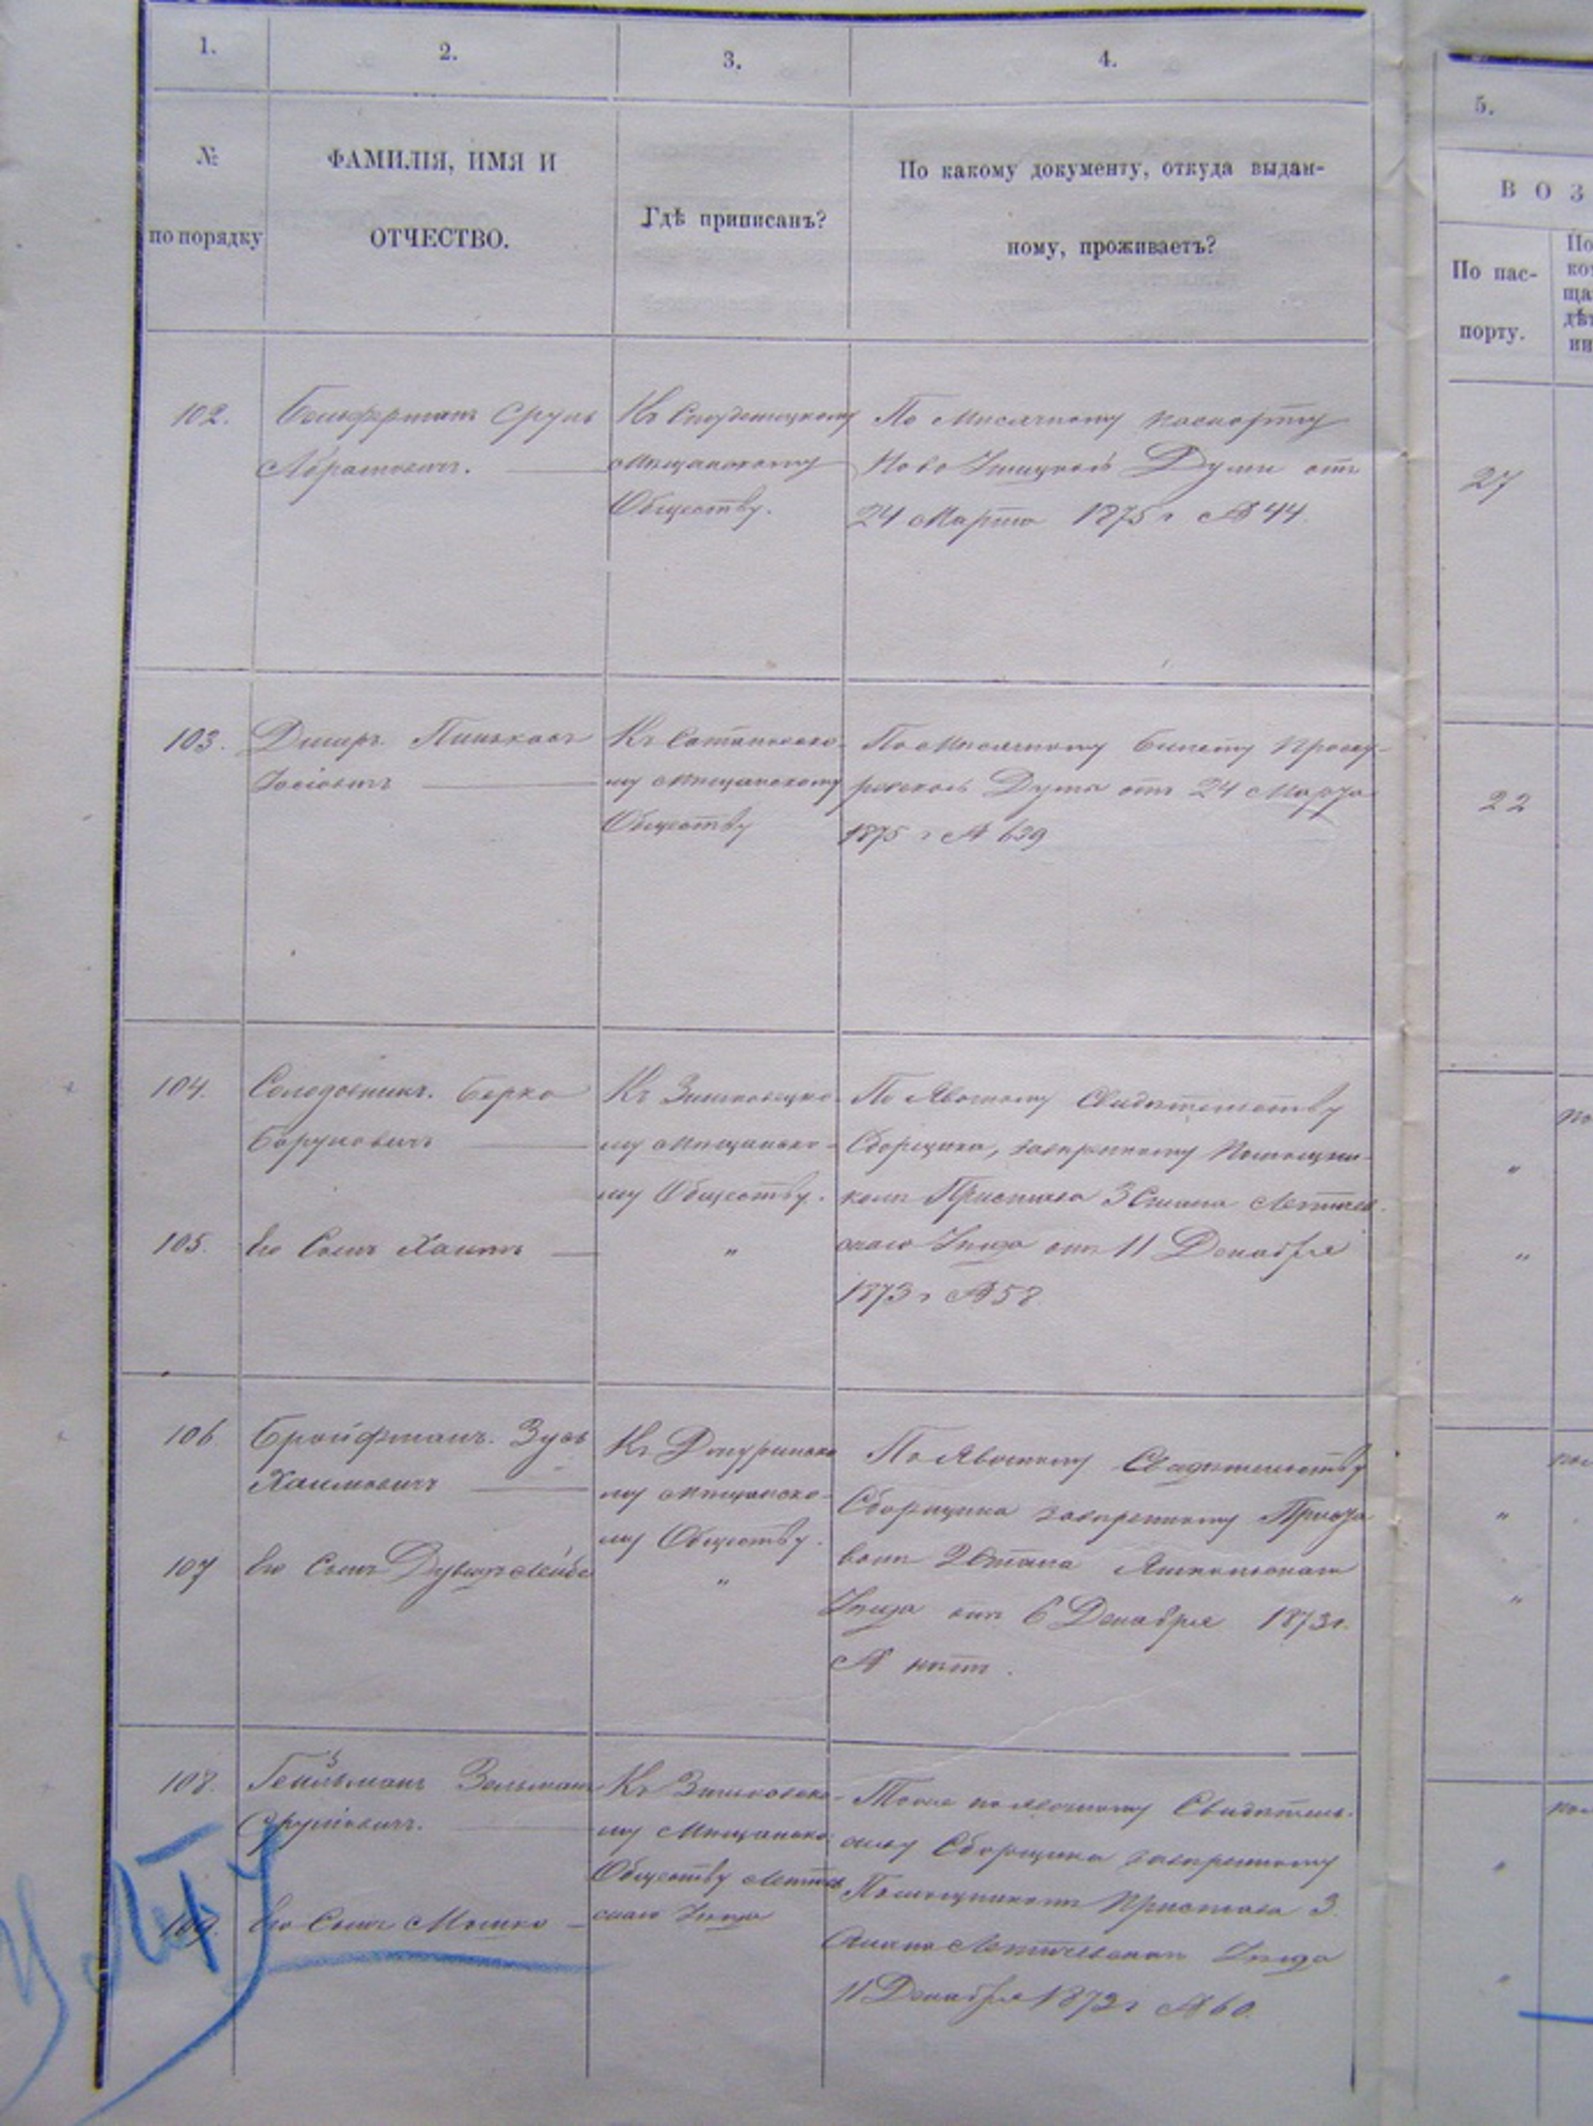 1.
2.
3.
4.
5.
№
по порядку
ФАМИЛІЯ, ИМЯ И
ОТЧЕСТВО.
Гдѣ приписанъ?
По какому документу, откуда выдан-
ному, проживаетъ?
В О З
По пас-
порту.
102.
Сруль
Абрамовичъ.
Къ
мѣщанскому
Обществу.
По мѣсячному паспорту
Ново Ушицкой Думы отъ
24 Марта 1875 г № 44.
27
103.
Пинькас
Іосіовичъ
Къ Сатановско-
му мѣщанскому
Обществу
По мѣсячному билету Проску-
ровской Думы отъ 24 Марта
1875 г № 639
22
104.
Солодовникъ. Берко
Боруховичъ
Къ Зиньковецко-
му мѣщанско-
му Обществу.
По Явочному Свидѣтельству
Сборщика, завѣренному Помощни-
комъ Пристава 3 Стана Летичев-
скаго Уѣзда отъ 11 Декабря
1873 г № 58.
"
105.
Его Сынъ Хаимъ
"
"
106
Бройфманъ. Зусь
Хаимовичъ
Къ Джуринско
му мѣщанско-
му Обществу.
По Явочному Свидѣтельству
Сборщика завѣренному Приста
вомъ 2 Стана Ямпольскаго
Уѣзда отъ 6 Декабря 1873 г.
№ нѣтъ.
"
107
Его Сынъ Дувидъ Лейба
"
"
108.
Зельман
Срулiовичъ.
Къ Зиньковско-
му Мѣщанско-
Обществу Летичев
скаго Уѣзда
Тоже по явочному Свидѣтель-
ству Сборщика завѣренному
Помощникомъ Пристава 3.
Стана Летичевскаго Уѣзда
11 Декабря 1873 г № 60.
"
109.
Его Сынъ Мошко
"